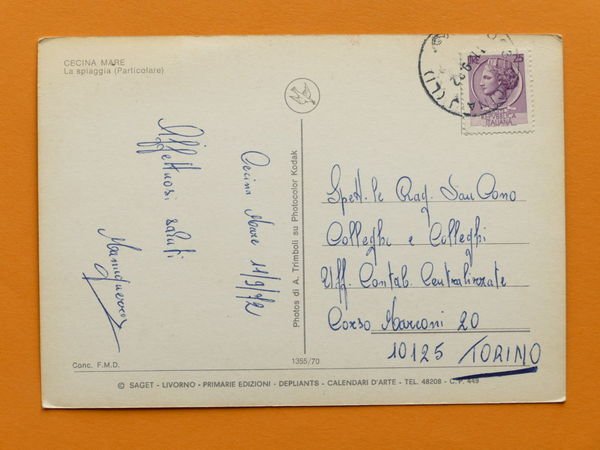 CECINA MARE
La spiaggia (Particolare)
Affettuosi saluti
Cecina Mare 11/9/72
Photos di A. Trimboli su Photocolor Kodak
25
REPUBBLICA
ITALIANA
Spett.le Rag. San Cono
Colleghe e Colleghi
Uff. Contab. Centralizzate
Corso Marconi 20
10125 TORINO
Conc. F.M.D.
1355/70
© SAGET - LIVORNO - PRIMARIE EDIZIONI - DEPLIANTS - CALENDARI D'ARTE - TEL. 48208 - C. P. 449